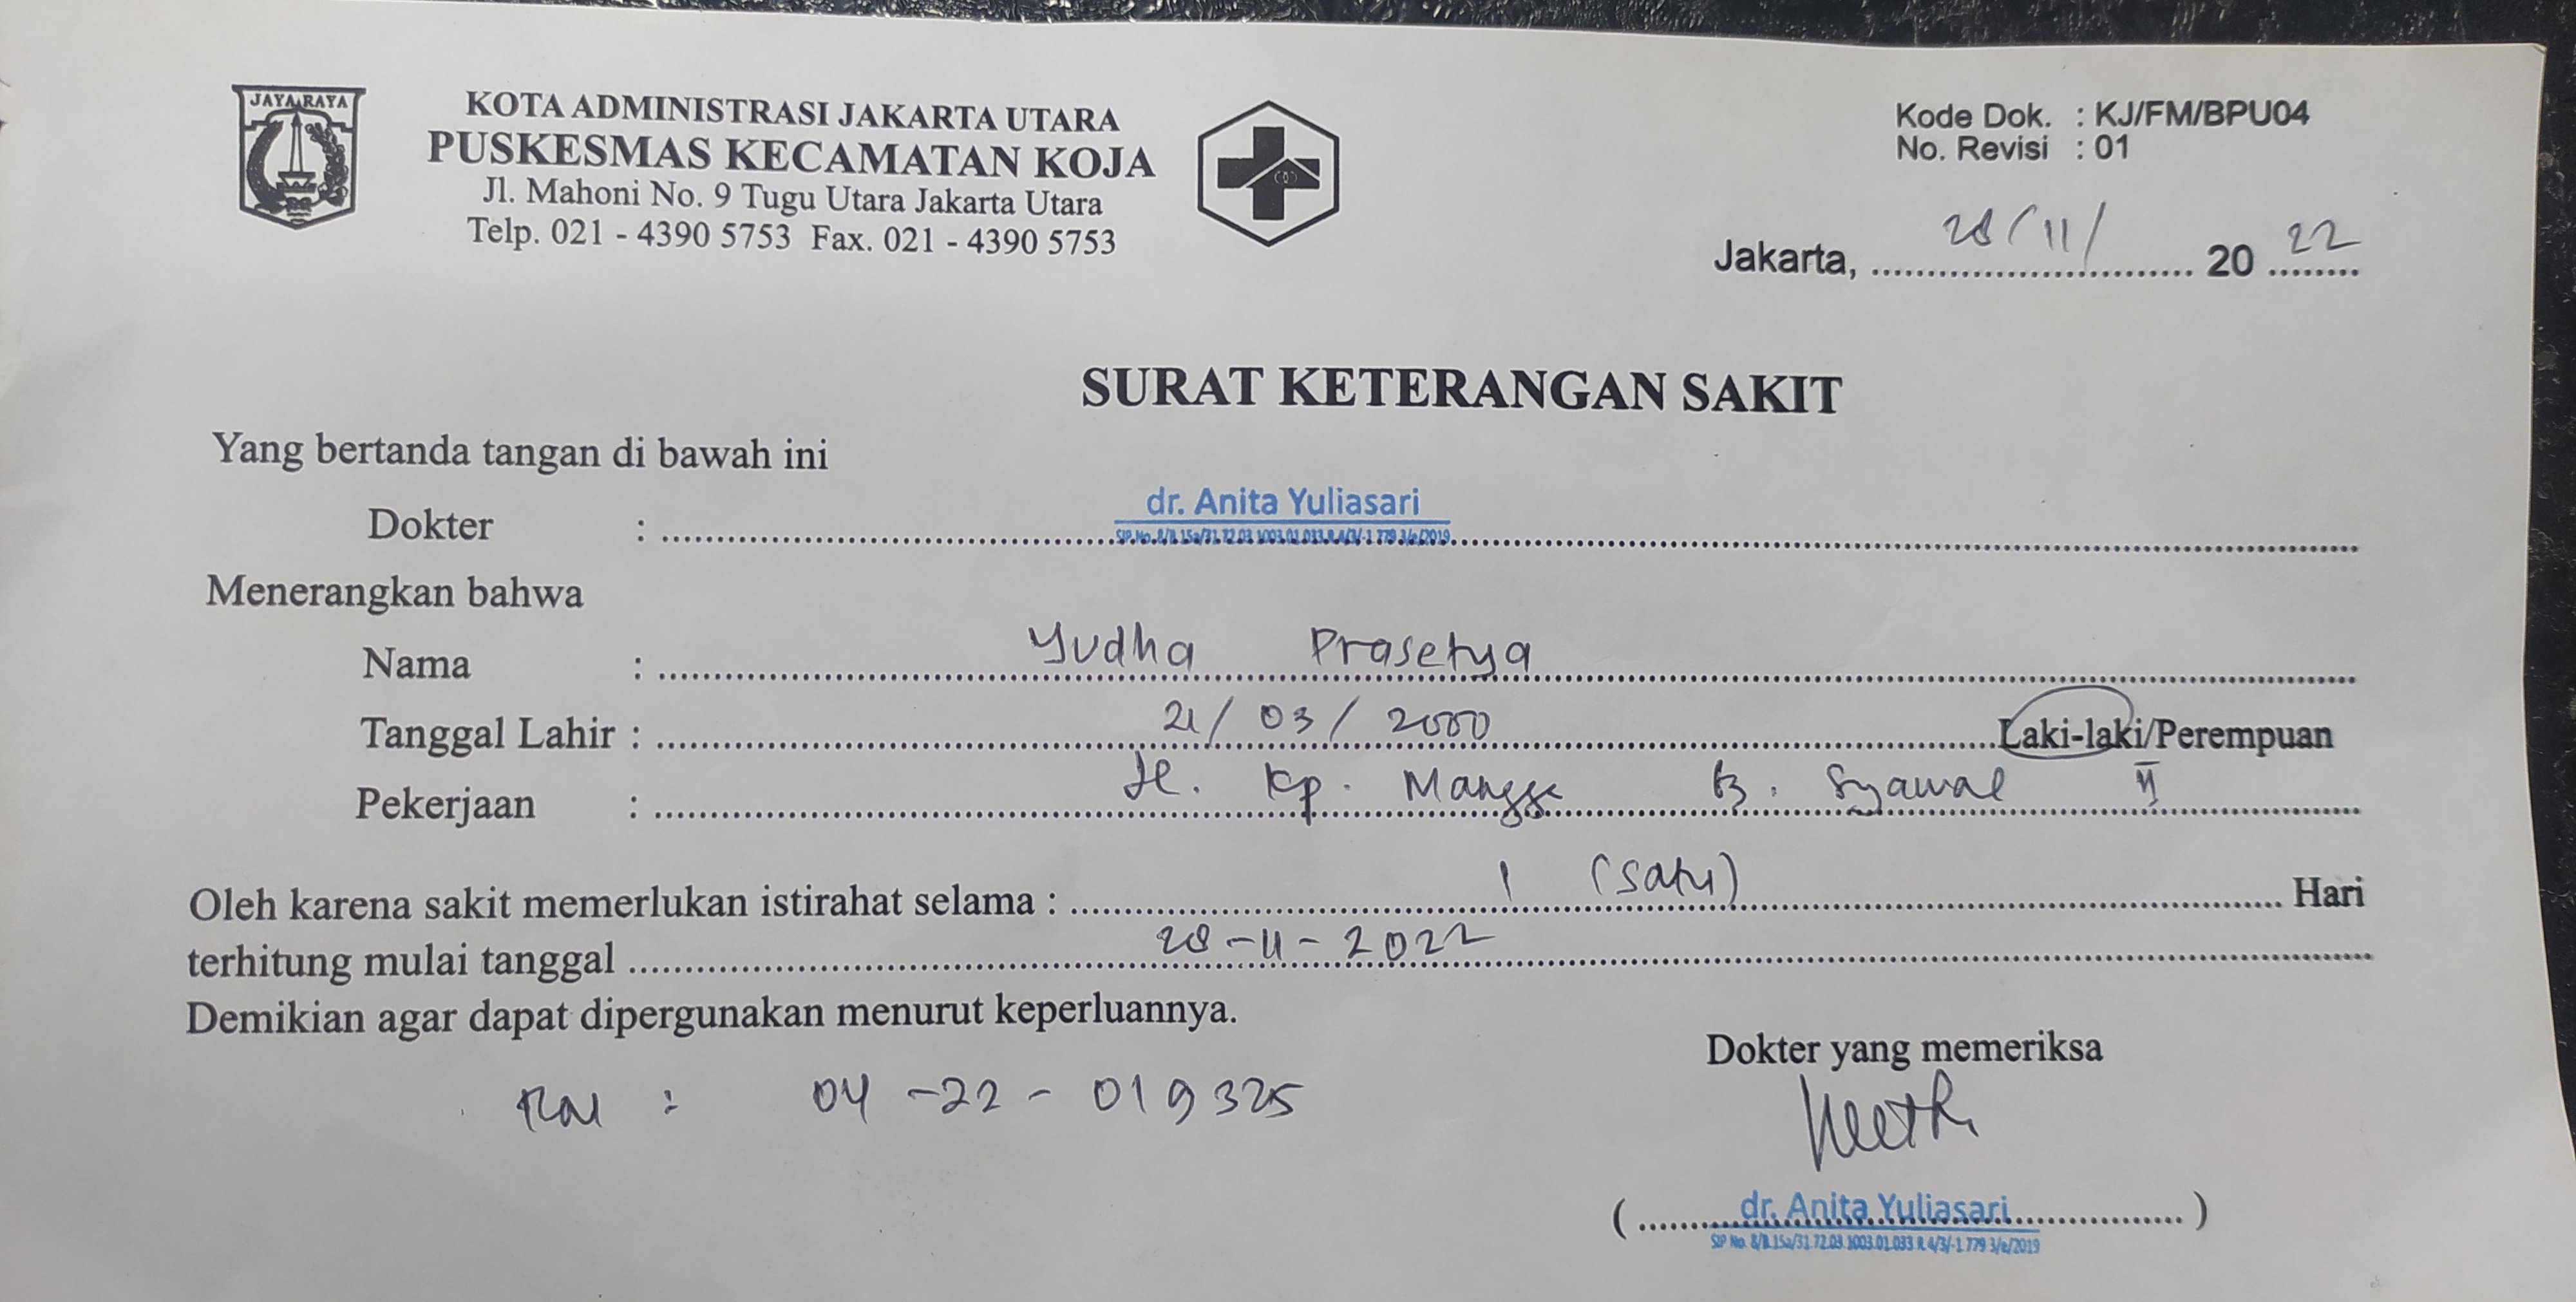 JAYA RAYA
KOTA ADMINISTRASI JAKARTA UTARA
PUSKESMAS KECAMATAN KOJA
Jl. Mahoni No. 9 Tugu Utara Jakarta Utara
Telp. 021 - 4390 5753 Fax. 021 - 4390 5753
Kode Dok. : KJ/FM/BPU04
No. Revisi : 01
Jakarta, 28/11/ 20 22
SURAT KETERANGAN SAKIT
Yang bertanda tangan di bawah ini
Dokter : dr. Anita Yuliasari
SIP No. 8/B.15a/31.72.03.1003.01.033.R.4/3/-1.779.3/e/2019
Menerangkan bahwa
Nama : Yudha Prasetya
Tanggal Lahir : 21/03/2000 Laki-laki/Perempuan
Pekerjaan : Jl. Kp. Mangga Syawal II
Oleh karena sakit memerlukan istirahat selama : 1 (satu) Hari
terhitung mulai tanggal 28-11-2022
Demikian agar dapat dipergunakan menurut keperluannya.
RM : 04-22-019325
Dokter yang memeriksa
( dr. Anita Yuliasari )
SIP No. 8/B.15a/31.72.03.1003.01.033.R.4/3/-1.779.3/e/2019